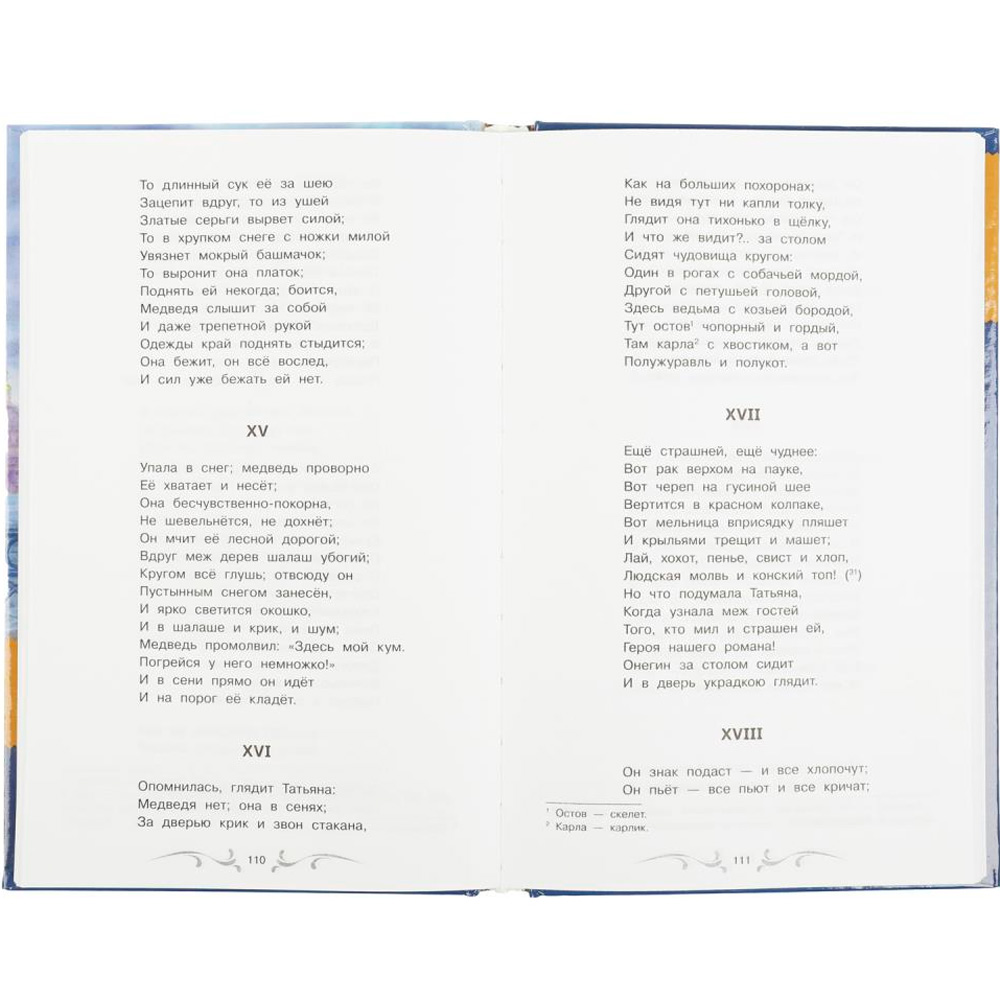 То длинный сук её за шею
Зацепит вдруг, то из ушей
Златые серьги вырвет силой;
То в хрупком снеге с ножки милой
Увязнет мокрый башмачок;
То выронит она платок;
Поднять ей некогда; боится,
Медведя слышит за собой
И даже трепетной рукой
Одежды край поднять стыдится;
Она бежит, он всё вослед,
И сил уже бежать ей нет.
XV
Упала в снег; медведь проворно
Её хватает и несёт;
Она бесчувственно-покорна,
Не шевельнётся, не дохнёт;
Он мчит её лесной дорогой;
Вдруг меж дерев шалаш убогий;
Кругом всё глушь; отвсюду он
Пустынным снегом занесён,
И ярко светится окошко,
И в шалаше и крик, и шум;
Медведь промолвил: «Здесь мой кум.
Погрейся у него немножко!»
И в сени прямо он идёт
И на порог её кладёт.
XVI
Опомнилась, глядит Татьяна:
Медведя нет; она в сенях;
За дверью крик и звон стакана,
110
Как на больших похоронах;
Не видя тут ни капли толку,
Глядит она тихонько в щёлку,
И что же видит?.. за столом
Сидят чудовища кругом:
Один в рогах с собачьей мордой,
Другой с петушьей головой,
Здесь ведьма с козьей бородой,
Тут остов¹ чопорный и гордый,
Там карла² с хвостиком, а вот
Полужуравль и полукот.
XVII
Ещё страшней, ещё чуднее:
Вот рак верхом на пауке,
Вот череп на гусиной шее
Вертится в красном колпаке,
Вот мельница вприсядку пляшет
И крыльями трещит и машет;
Лай, хохот, пенье, свист и хлоп,
Людская молвь и конский топ! (³¹)
Но что подумала Татьяна,
Когда узнала меж гостей
Того, кто мил и страшен ей,
Героя нашего романа!
Онегин за столом сидит
И в дверь украдкою глядит.
XVIII
Он знак подаст — и все хлопочут;
Он пьёт — все пьют и все кричат;
¹ Остов — скелет.
² Карла — карлик.
111